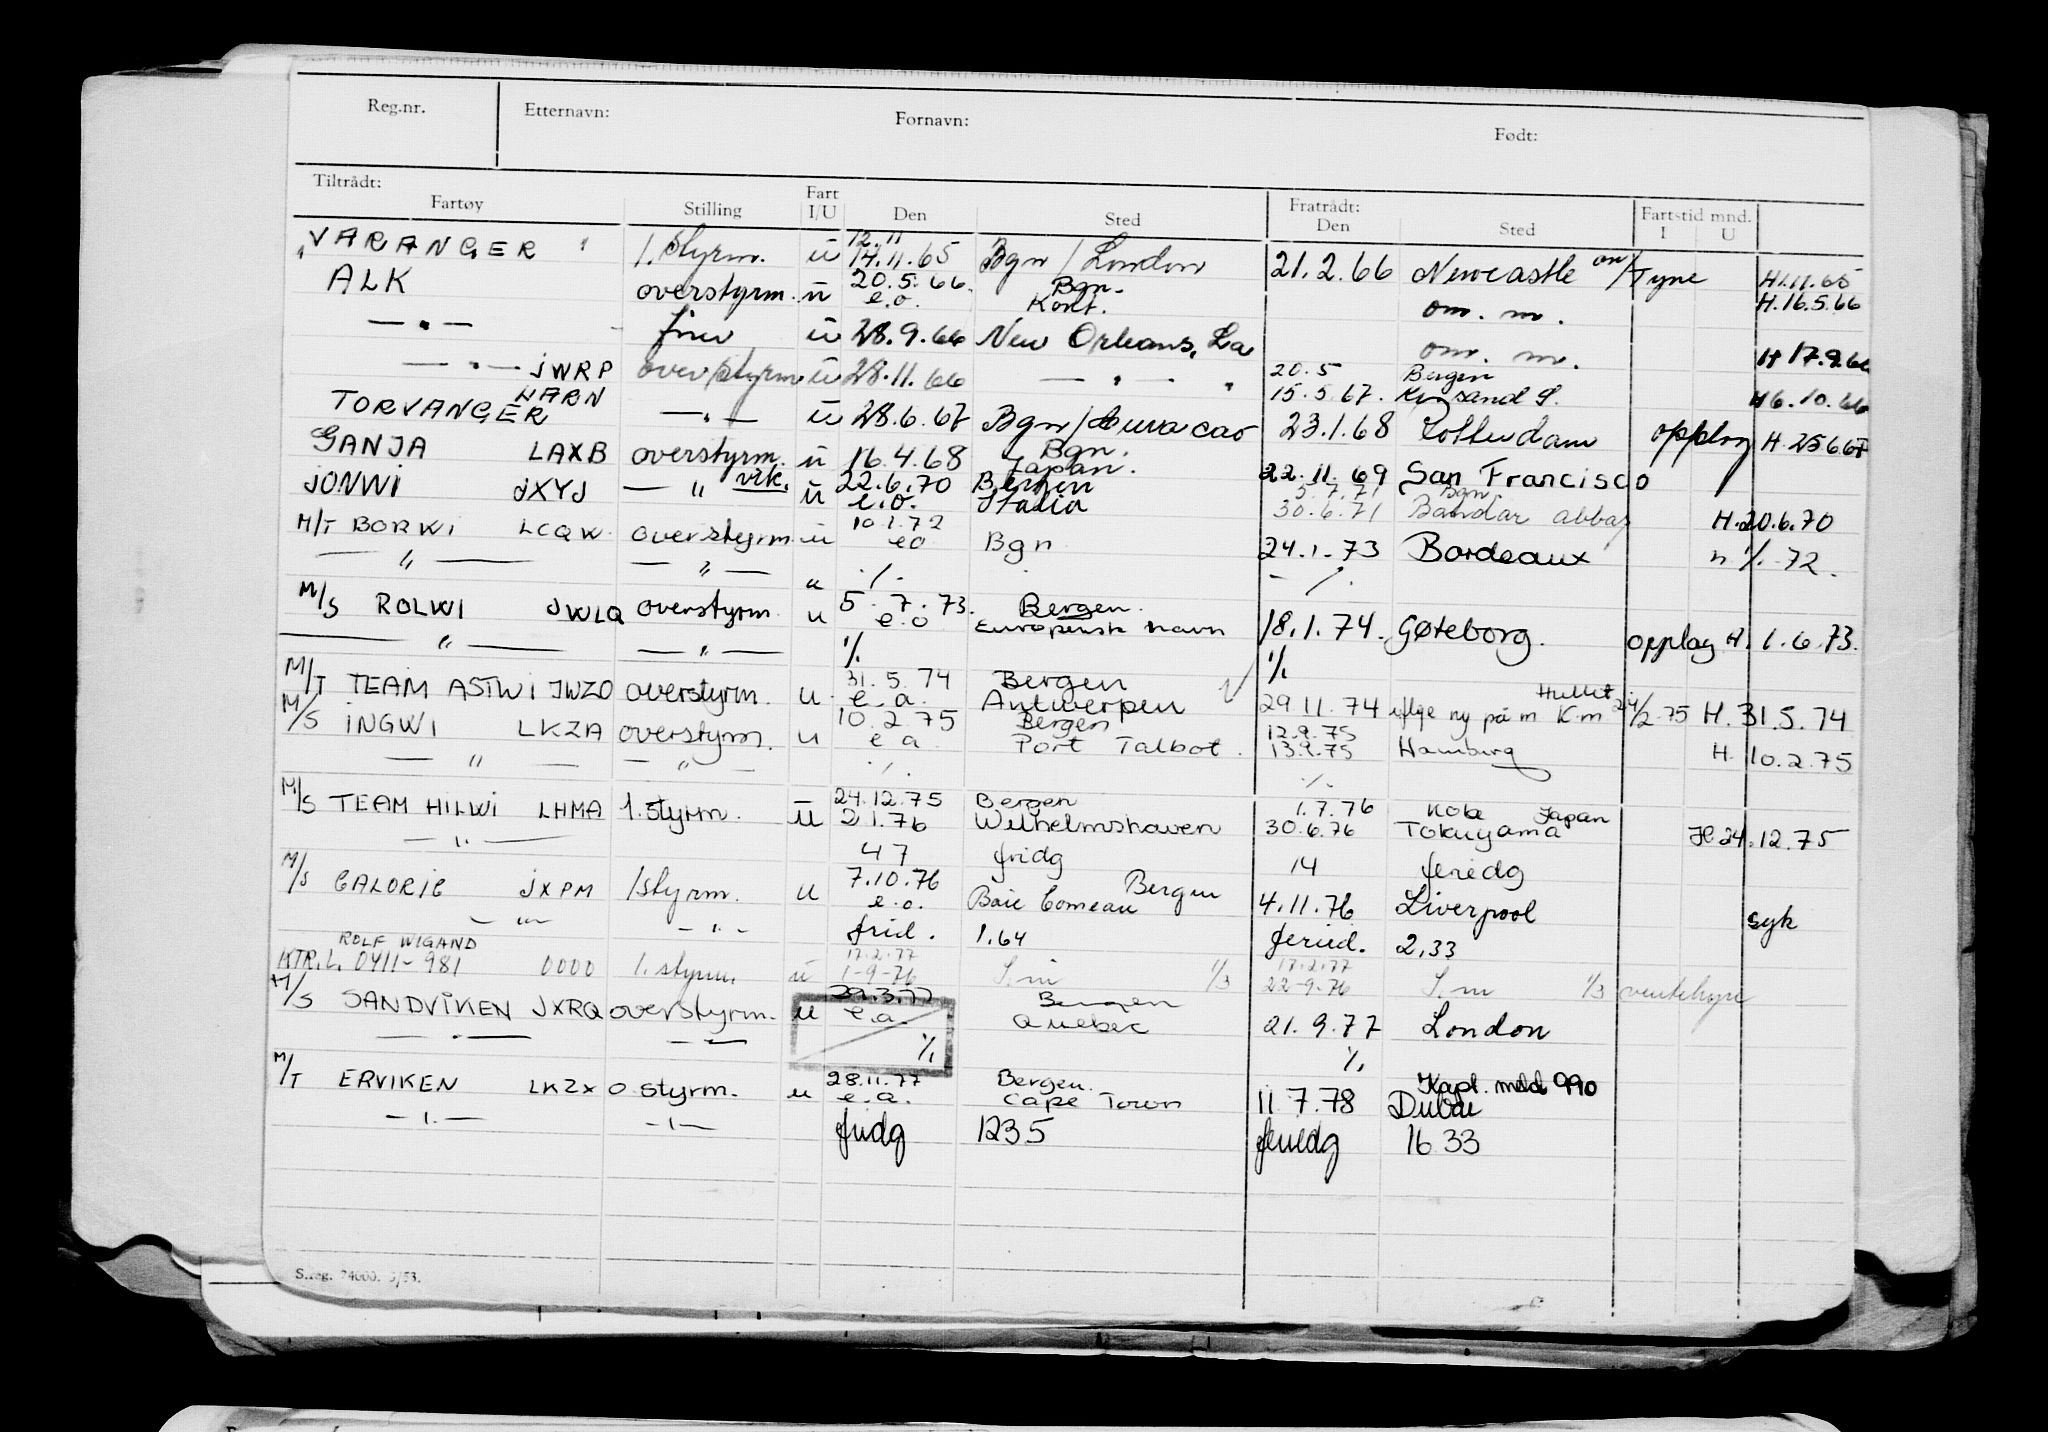 Reg.nr. Etternavn: Fornavn: Født:
Tiltrådt: Fartøy Stilling Fart I/U Den Sted Fratrådt: Den Sted Fartstid mnd. I U
12.11
VARANGER 1. styrm. u 14.11.65 Bgn / London 21.2.66 Newcastle on/Tyne H.11.65
ALK overstyrm. u 20.5.66. Bgn. om. m. H.16.5.66
e.o. Kont.
— " — u 28.9.66 New Orleans, La om. m. H 17.9.66
— " — JWRP overstyrm u 28.11.66 — " — " 20.5 Bergen
15.5.67. Kr.sand S. H 6.10.66
HARN
TORVANGER — " — u 28.6.67 Bgn / Curacao 23.1.68 Rotterdam opplag H.25667
GANJA LAXB overstyrm. u 16.4.68 Bgn. Japan. 22.11.69 San Francisco
JONWI JXYJ — " — vik. u 22.6.70 Bergen 5.7.71 Bgn
e.o. Italia 30.6.71 Bandar abbas H.20.6.70
M/T BORWI LCQW overstyrm u 10.1.72 Bgn 24.1.73 Bordeaux H 1/. 72.
eo
— " — — " — u ./. ./.
M/S ROLWI JWLQ overstyrm. u 5.7.73. Bergen. 18.1.74. Gøteborg. opplag H. 1.6.73.
e.o Europeisk havn
— " — — " — ./. ./.
M/T TEAM ASTWI JWZO overstyrm. u 31.5.74 Bergen
e.a. Antwerpen 29.11.74 ny på m K.m 24/2.75 H.31.5.74
M/S INGWI LKZA overstyrm. u 10.2.75 Bergen 12.9.75
e a Port Talbot. 13.9.75 Hamburg H. 10.2.75
— " — — " — ./. ./.
M/S TEAM HILWI LHMA 1.styrm. u 24.12.75 Bergen 1.7.76 Kobe Japan
2 1.76 Wilhelmshaven 30.6.76 Tokuyama H.24.12.75
— " — 47 fridg 14 feriedg
M/S CALORIC JXPM 1styrm. u 7.10.76 Bergen
e.o. Baie Comeau 4.11.76 Liverpool syk
— " — — " — frid. 1.64 feried. 2.33
ROLF WIGAND 17.2.77 17.2.77
KTR.L. 0411-981 0000 1. styrm. u 1-9-76 S.m 1/3 22-9-76 S.m 1/3 ventehyre
M/S SANDVIKEN JXRQ overstyrm. u 29.3.77 Bergen
e.a. Quebec 21.9.77 London
— " — — " — ./. ./.
M/T ERVIKEN LKZX o.styrm. u 28.11.77 Bergen. Kapt. mdd 990
e.a. Cape Town 11.7.78 Dubai
— " — — " — fridg 1235 feriedg 1633
S.reg. 74000. 5/53.